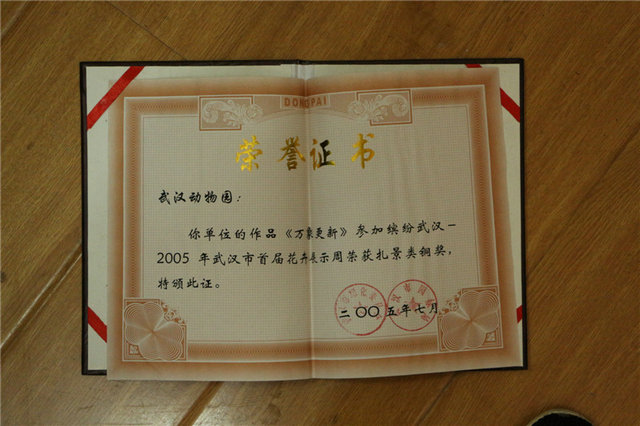 DONGPAI
荣誉证书
武汉动物园：
你单位的作品《万象更新》参加缤纷武汉－
2005 年武汉市首届花卉展示周荣获扎景类铜奖，
特颁此证。
二〇〇五年七月